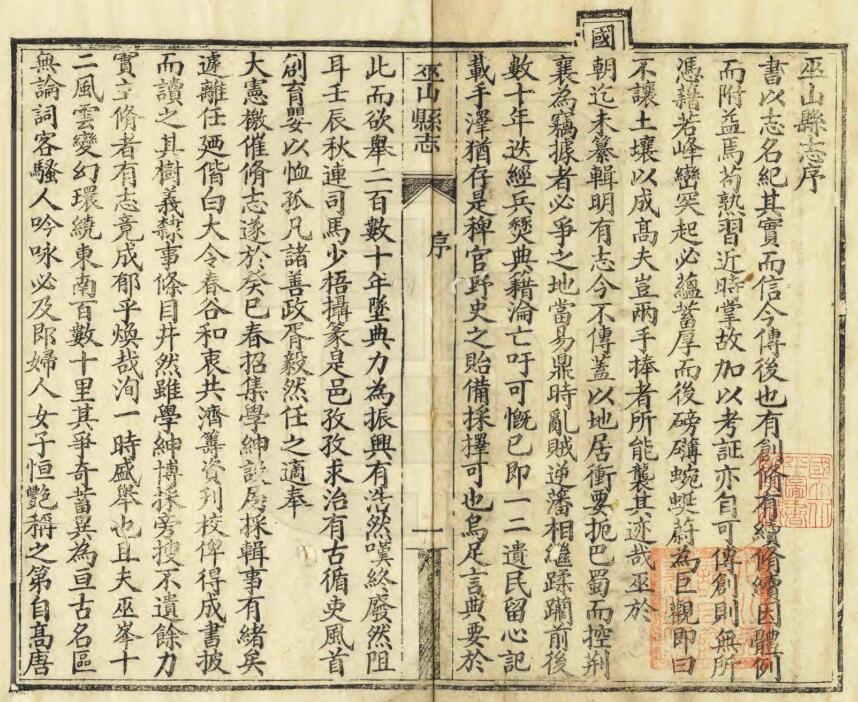 巫山縣志序
書以志名紀其實而信今傳後也有創脩有續脩續因體例
而附益焉苟熟習近時掌故加以考証亦自可傳創則無所
憑藉若峰巒突起必蘊蓄厚而後磅礴蜿蜒蔚為巨觀即曰
不讓土壤以成高夫豈兩手捧者所能襲其迹哉巫於
國
朝迄未纂輯明有志今不傳蓋以地居衝要扼巴蜀而控荆
襄為竊據者必爭之地當易鼎時亂賊逆藩相繼蹂躪前後
數十年迭經兵燹典籍淪亡吁可慨已即一二遺民留心記
載手澤猶存是稗官野史之貽備採擇可也烏足言典要於
巫山縣志
序
一
此而欲舉二百數十年墜典力為振興有浩然嘆終廢然阻
耳壬辰秋連司馬少梧攝篆是邑孜孜求治有古循吏風首
創育嬰以恤孤凡諸善政胥毅然任之適奉
大憲檄催脩志遂於癸巳春招集學紳設局採輯事有緒矣
遽離任廼偕白大令春谷和衷共濟籌資刋校俾得成書披
而讀之其樹義隸事條目井然雖學紳博採旁搜不遺餘力
實主脩者有志竟成郁乎煥哉洵一時盛舉也且夫巫峯十
二風雲變幻環繞東南百數十里其爭奇蓄異為亘古名區
無論詞客騷人吟咏必及即婦人女子恒艷稱之第自高唐